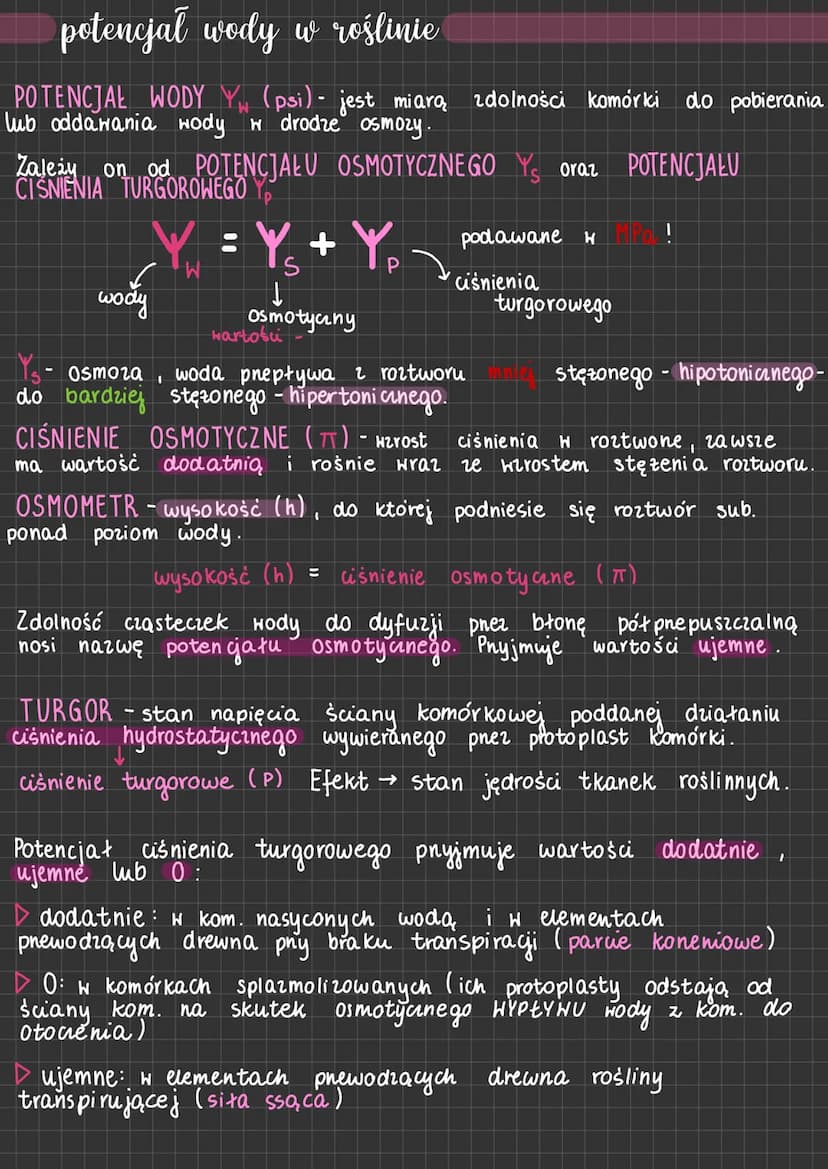 potencjał wody w roślinie
POTENCJAŁ WODY Ψw (psi) - jest miarą zdolności komórki do pobierania
lub oddawania wody w drodze osmozy.
Zależy on od POTENCJAŁU OSMOTYCZNEGO Ψs oraz POTENCJAŁU
CIŚNIENIA TURGOROWEGO Ψp
Ψw = Ψs + Ψp podawane w MPa!
wody
osmotyczny
wartości -
ciśnienia
turgorowego
Ψs - osmoza, woda przepływa z roztworu mniej stężonego - hipotonicznego -
do bardziej stężonego - hipertonicznego.
CIŚNIENIE OSMOTYCZNE (π) - wzrost ciśnienia w roztworze, zawsze
ma wartość dodatnią i rośnie wraz ze wzrostem stężenia roztworu.
OSMOMETR - wysokość (h), do której podniesie się roztwór sub.
ponad poziom wody.
wysokość (h) = ciśnienie osmotyczne (π)
Zdolność cząsteczek wody do dyfuzji przez błonę półprzepuszczalną
nosi nazwę potencjału osmotycznego. Przyjmuje wartości ujemne.
TURGOR - stan napięcia ściany komórkowej poddanej działaniu
ciśnienia hydrostatycznego wywieranego przez protoplast komórki.
ciśnienie turgorowe (P) Efekt → stan jędrości tkanek roślinnych.
Potencjał ciśnienia turgorowego przyjmuje wartości dodatnie,
ujemne lub 0:
▷ dodatnie: w kom. nasyconych wodą i w elementach
przewodzących drewna przy braku transpiracji (parcie korzeniowe)
▷ 0: w komórkach splazmolizowanych (ich protoplasty odstają od
ściany kom. na skutek osmotycznego WYPŁYWU wody z kom. do
otoczenia)
▷ ujemne: w elementach przewodzących drewna rośliny
transpirującej (siła ssąca)